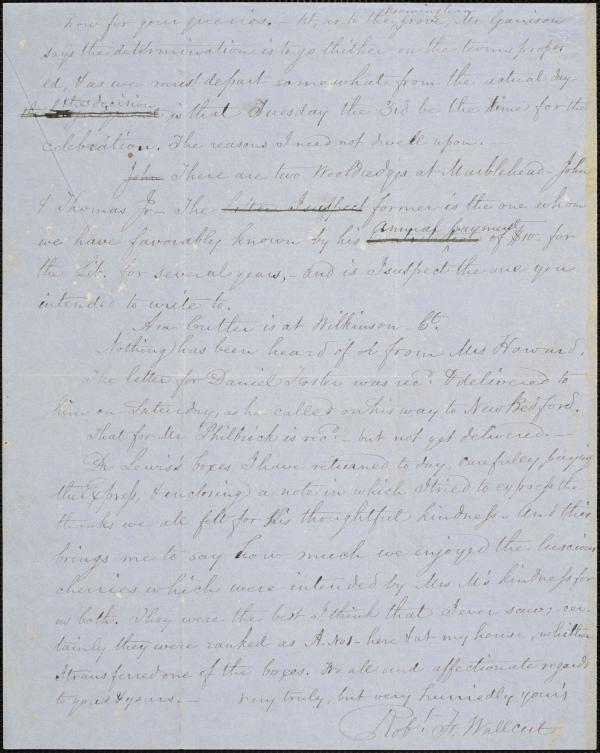 Now for your queries. – 1st, as to the Framingham grove, Mr Garrison
says the determination is to go thither on the terms propos
ed, & as we must depart somewhat from the actual day
the decision is that Tuesday the 3rd be the time for the
celebration. The reasons I need not dwell upon. –
John There are two Wooldredges at Marblehead – John
& Thomas Jr – The latter I suspect former is the one whom
we have favorably known by his annual payment of $10 – for
the Lib. for several years, – and is I suspect the one you
intended to write to.
Asa Cutler is at Wilkinson. Ct.
Nothing has been heard of or from Mrs Howard.
The letter for Daniel Foster was recd. & delivered to
him on Saturday, as he called on his way to New Bedford.
That for Mr Philbrick is recd. – but not yet delivered. –
Dr Lewis's boxes I have returned to day, carefully, paying
the Express, & enclosing a note in which I tried to express the
thanks we all felt for his thoughtful kindness – And this
brings me to say how much we enjoyed the luscious
cherries which were intended by Mrs M's kindness for
us both. They were the best I think that I ever saw; cer-
tainly they were ranked as A. No 1 – here & at my house, whither
I transferred one of the boxes. We all send affectionate regards
to you & yours. – Very truly, but very hurriedly yours
Robt. F. Wallcut